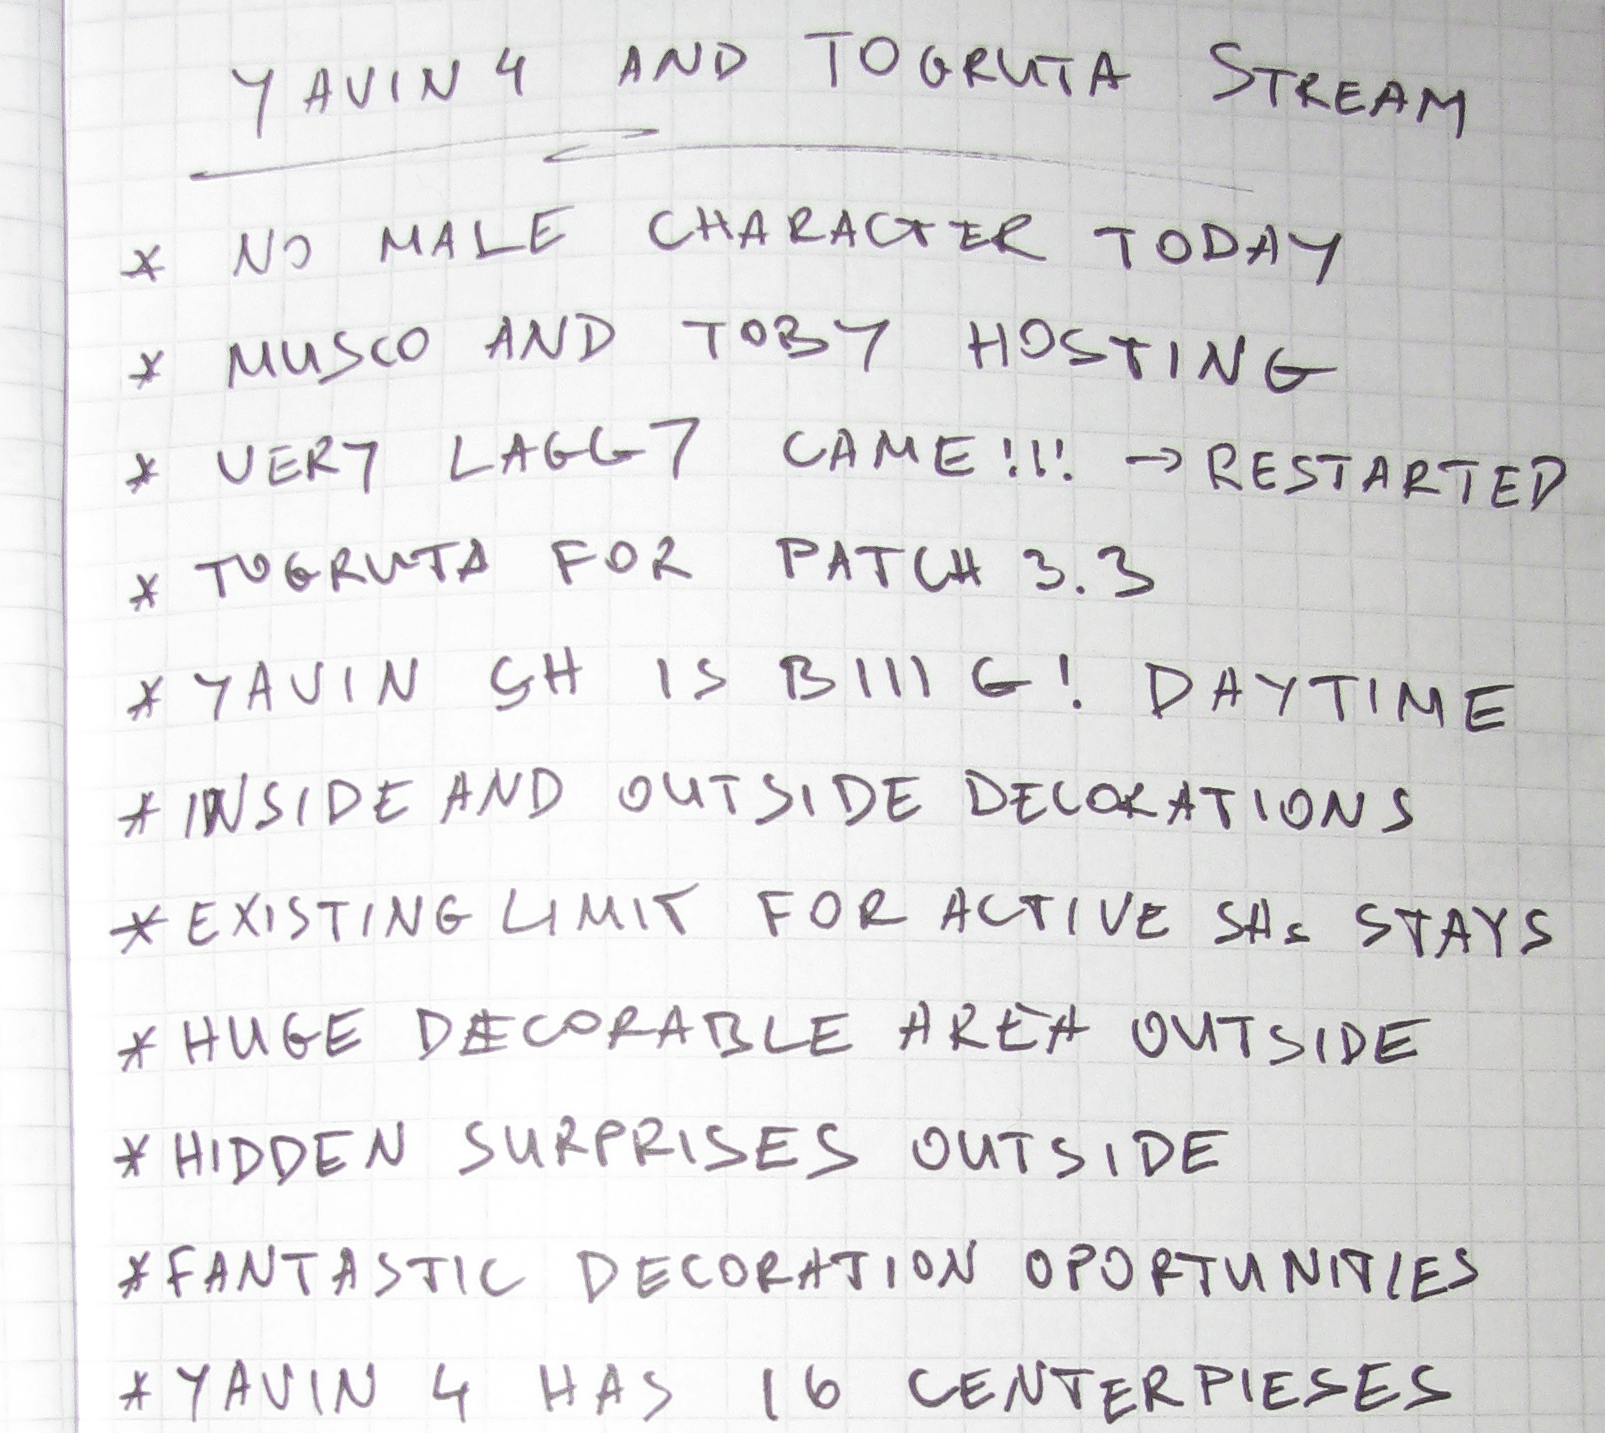 YAVIN 4 AND TOGRUTA STREAM
* NO MALE CHARACTER TODAY
* MUSCO AND TOBY HOSTING
* VERY LAGGY GAME!!! → RESTARTED
* TOGRUTA FOR PATCH 3.3
* YAVIN SH IS BIIIG! DAYTIME
* INSIDE AND OUTSIDE DECORATIONS
* EXISTING LIMIT FOR ACTIVE SHs STAYS
* HUGE DECORABLE AREA OUTSIDE
* HIDDEN SURPRISES OUTSIDE
* FANTASTIC DECORATION OPORTUNITIES
* YAVIN 4 HAS 16 CENTERPIESES